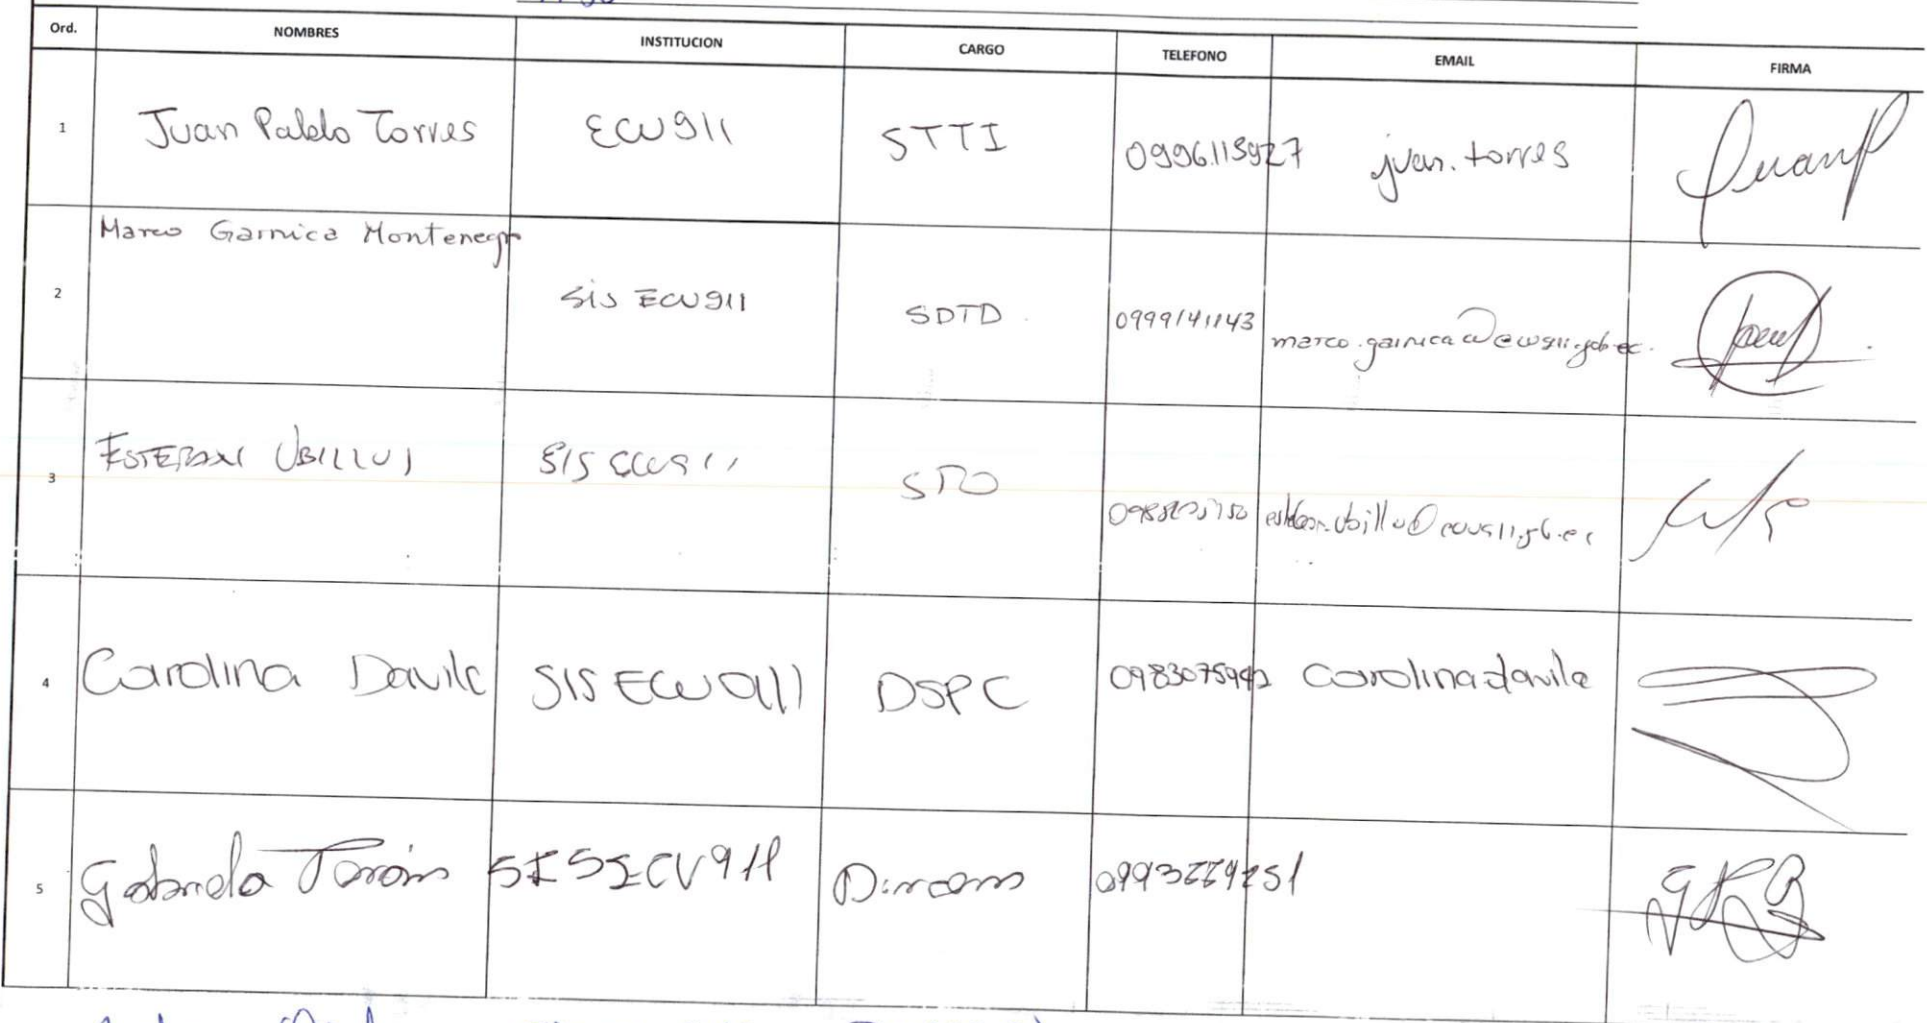 Ord. NOMBRES INSTITUCION CARGO TELEFONO EMAIL FIRMA
1 Juan Pablo Torres ECU911 STTI 0996115927 juan.torres
2 Marco Garnica Montenegro SIS ECU911 SDTD 0999141143 marco.garnica@ecu911.gob.ec.
3 ESTEBAN UBILLUS SIS ECU911 STO
4 Carolina Davila SIS ECU911 DSPC carolina.davila
5 Gabriela Terán SISECU911 Dircom